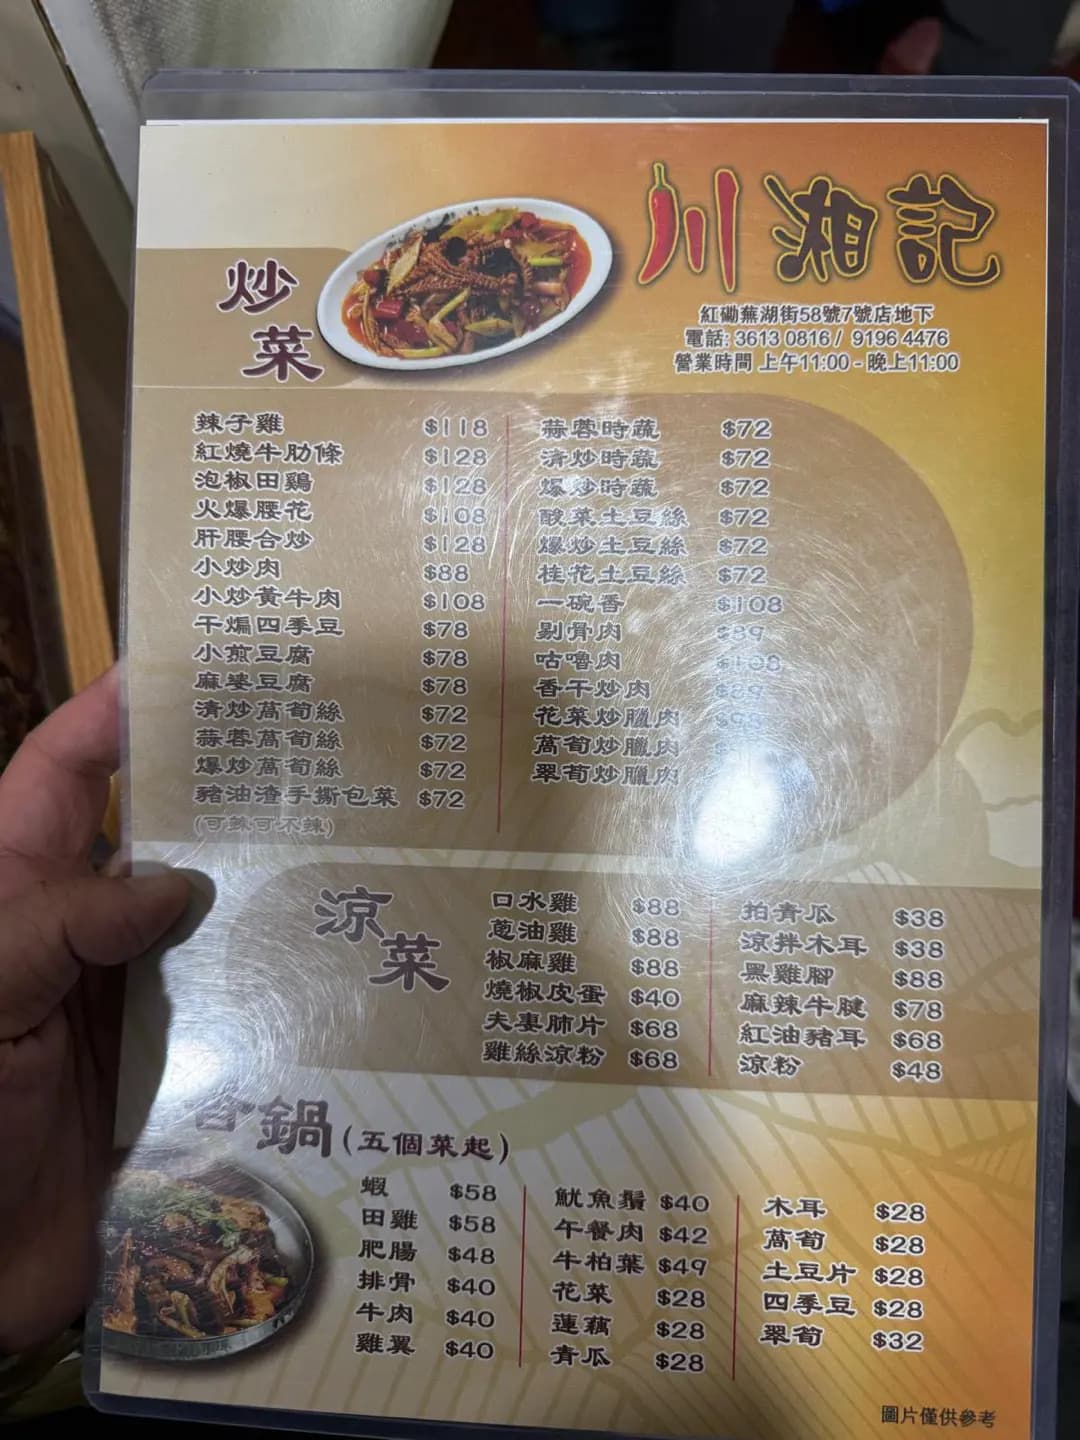 川湘記
紅磡蕪湖街58號7號店地下
電話: 3613 0816 / 9196 4476
營業時間 上午11:00 - 晚上11:00
炒菜
辣子雞 $118
紅燒牛肋條 $128
泡椒田鷄 $128
火爆腰花 $108
肝腰合炒 $128
小炒肉 $88
小炒黃牛肉 $108
干煸四季豆 $78
小煎豆腐 $78
麻婆豆腐 $78
清炒萵筍絲 $72
蒜蓉萵筍絲 $72
爆炒萵筍絲 $72
豬油渣手撕包菜 $72
(可辣可不辣)
蒜蓉時蔬 $72
清炒時蔬 $72
爆炒時蔬 $72
酸菜土豆絲 $72
爆炒土豆絲 $72
桂花土豆絲 $72
一碗香 $108
剔骨肉 $89
咕嚕肉 $108
香干炒肉 $89
花菜炒臘肉 $98
萵筍炒臘肉
翠筍炒臘肉
涼菜
口水雞 $88
蔥油雞 $88
椒麻雞 $88
燒椒皮蛋 $40
夫妻肺片 $68
雞絲涼粉 $68
拍青瓜 $38
涼拌木耳 $38
黑雞腳 $88
麻辣牛腱 $78
紅油豬耳 $68
涼粉 $48
鍋(五個菜起)
蝦 $58
田雞 $58
肥腸 $48
排骨 $40
牛肉 $40
雞翼 $40
魷魚鬚 $40
午餐肉 $42
牛柏葉 $49
花菜 $28
蓮藕 $28
青瓜 $28
木耳 $28
萵筍 $28
土豆片 $28
四季豆 $28
翠筍 $32
圖片僅供參考